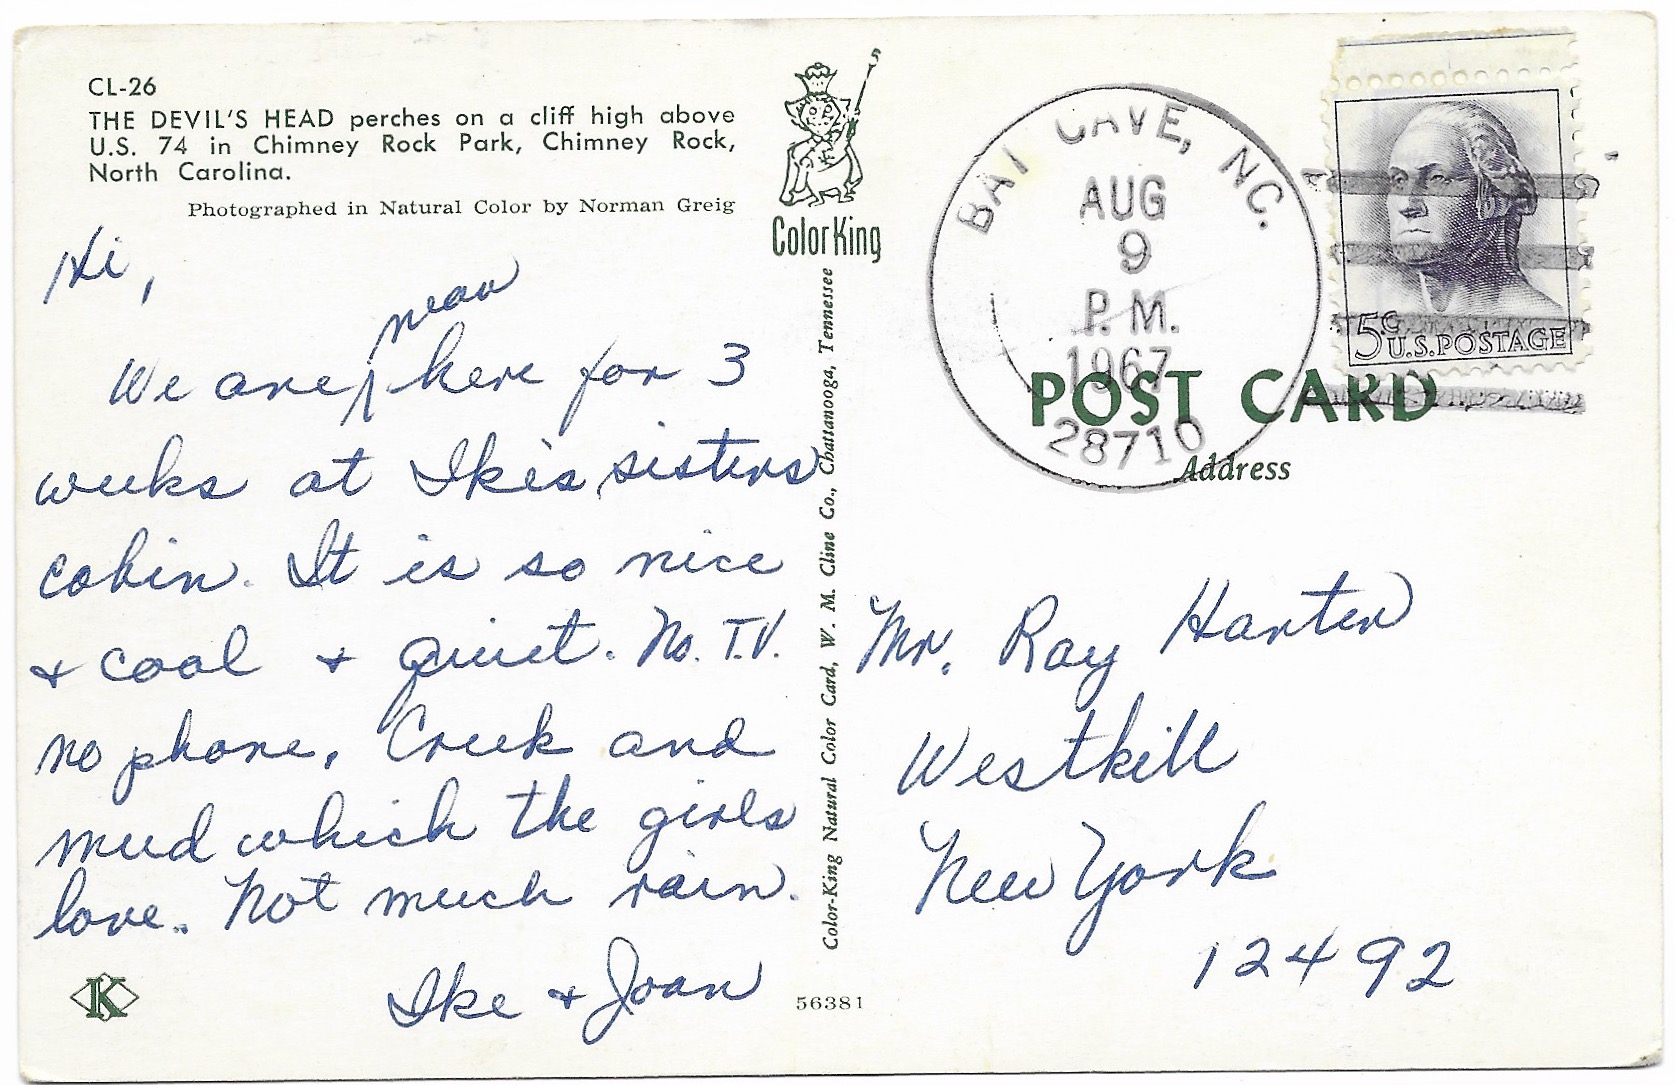 CL-26
THE DEVIL'S HEAD perches on a cliff high above
U.S. 74 in Chimney Rock Park, Chimney Rock,
North Carolina.
Photographed in Natural Color by Norman Greig
ColorKing
Hi,
near
We are ^ here for 3
weeks at Ike's sisters
cabin. It is so nice
& cool & quiet. No. T.V.
no phone. Creek and
mud which the girls
love. Not much rain.
Ike & Joan
K
Color-King Natural Color Card, W. M. Cline Co., Chattanooga, Tennessee
56381
BAT CAVE, NC.
AUG
9
P.M.
1967
28710
5¢
U.S. POSTAGE
POST CARD
Address
Mr. Ray Harter
Westkill
New York
12492